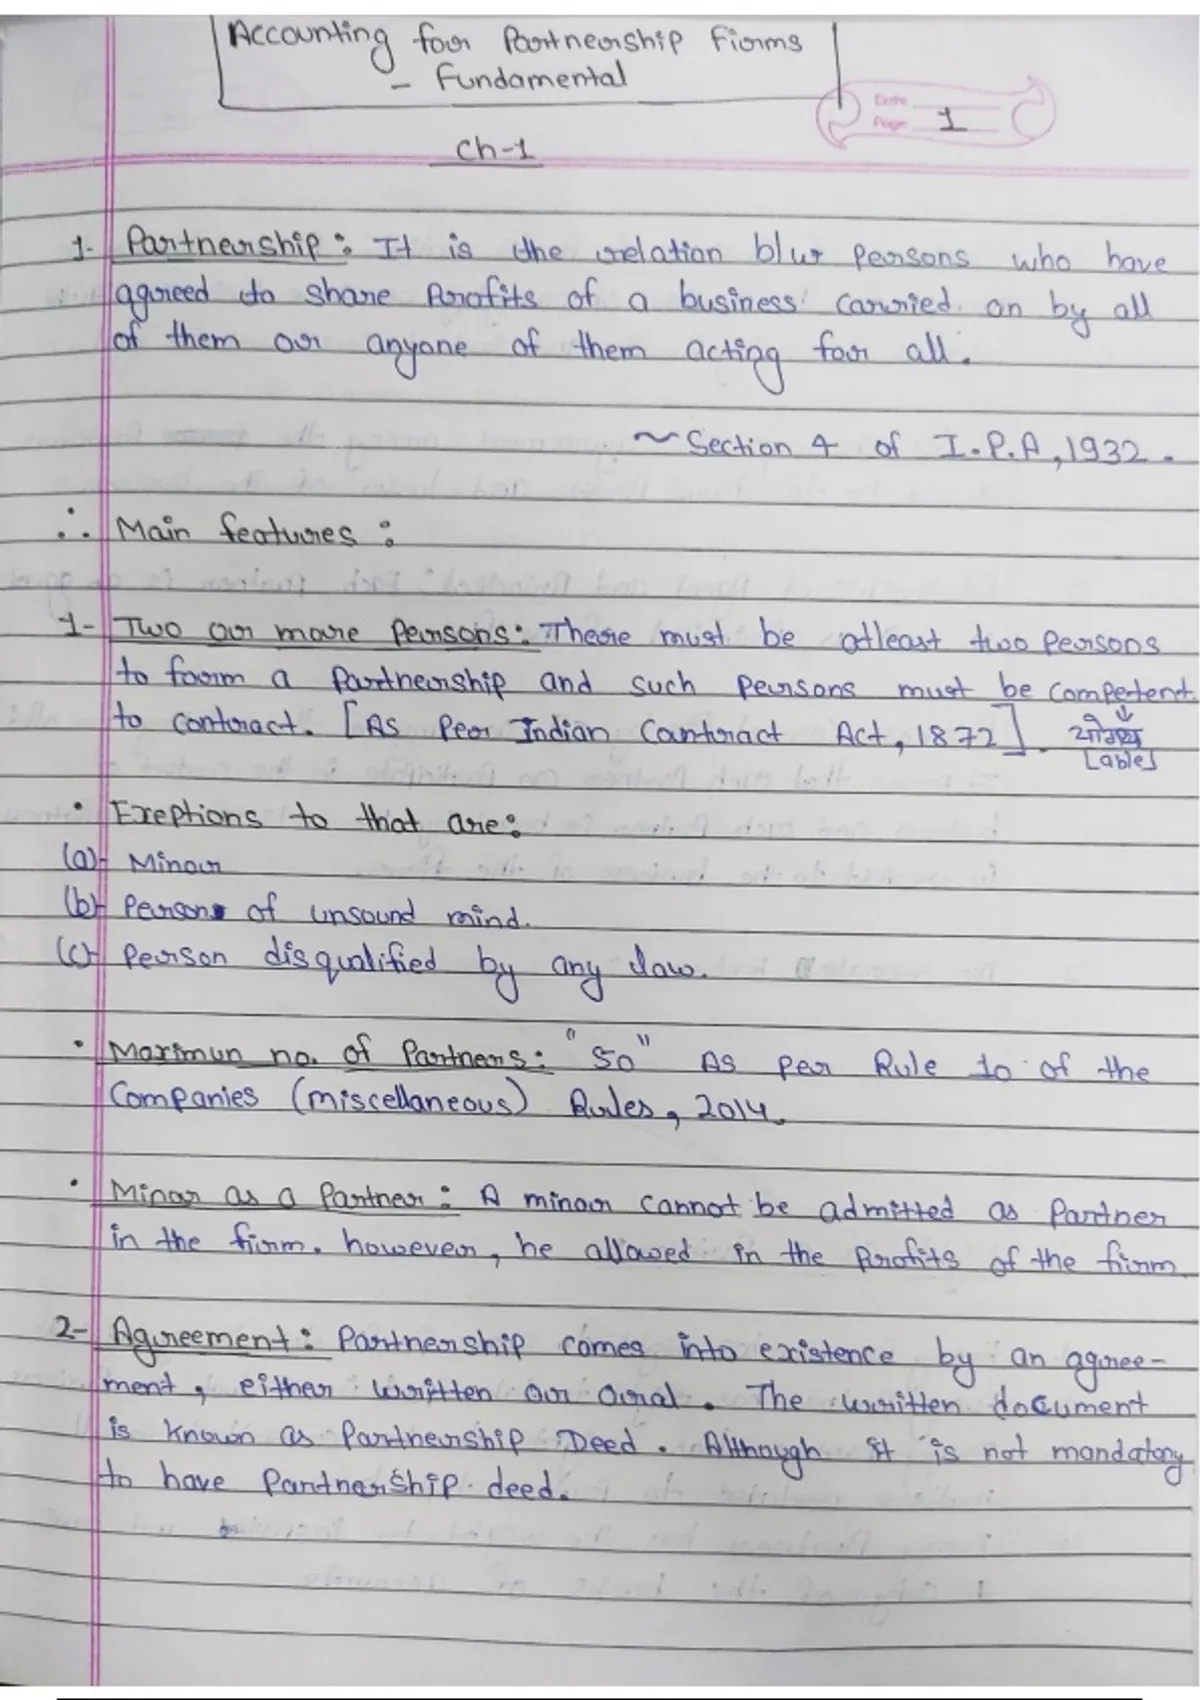 Accounting for Partnership Firms
- Fundamental
Date
Page 1
Ch-1
1- Partnership : It is the relation b/w Persons who have
agreed to share Profits of a business carried on by all
of them or anyone of them acting for all.
~ Section 4 of I.P.A, 1932.
∴ Main features :
1- Two or more Persons : There must be atleast two Persons
to form a Partnership and such persons must be competent
to contract. [As Per Indian Contract Act, 1872]. ↓ योग्य
[able]
• Exeptions to that are :
(a)- Minor
(b)- Persons of unsound mind.
(c)- Person disqualified by any law.
• Maximun no. of Partners : "50" As per Rule 10 of the
Companies (miscellaneous) Rules, 2014.
• Minor as a Partner : A minor cannot be admitted as Partner
in the firm. however, he allowed in the Profits of the firm.
2- Agreement : Partnership comes into existence by an agree-
ment, either written or oral. The written document
is known as Partnership Deed. Although it is not mandatory
to have Partnership deed.